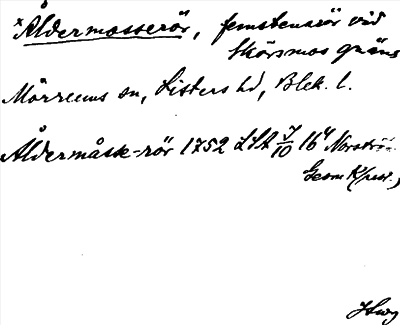 *Åldermosserör, femstenarör vid
Skörsmos gräns
Mörrums sn, Listers hd, Blek. l.
Åldermåsk-rör 1752 LSA 7/10 16⁴
Geom K(pers.)